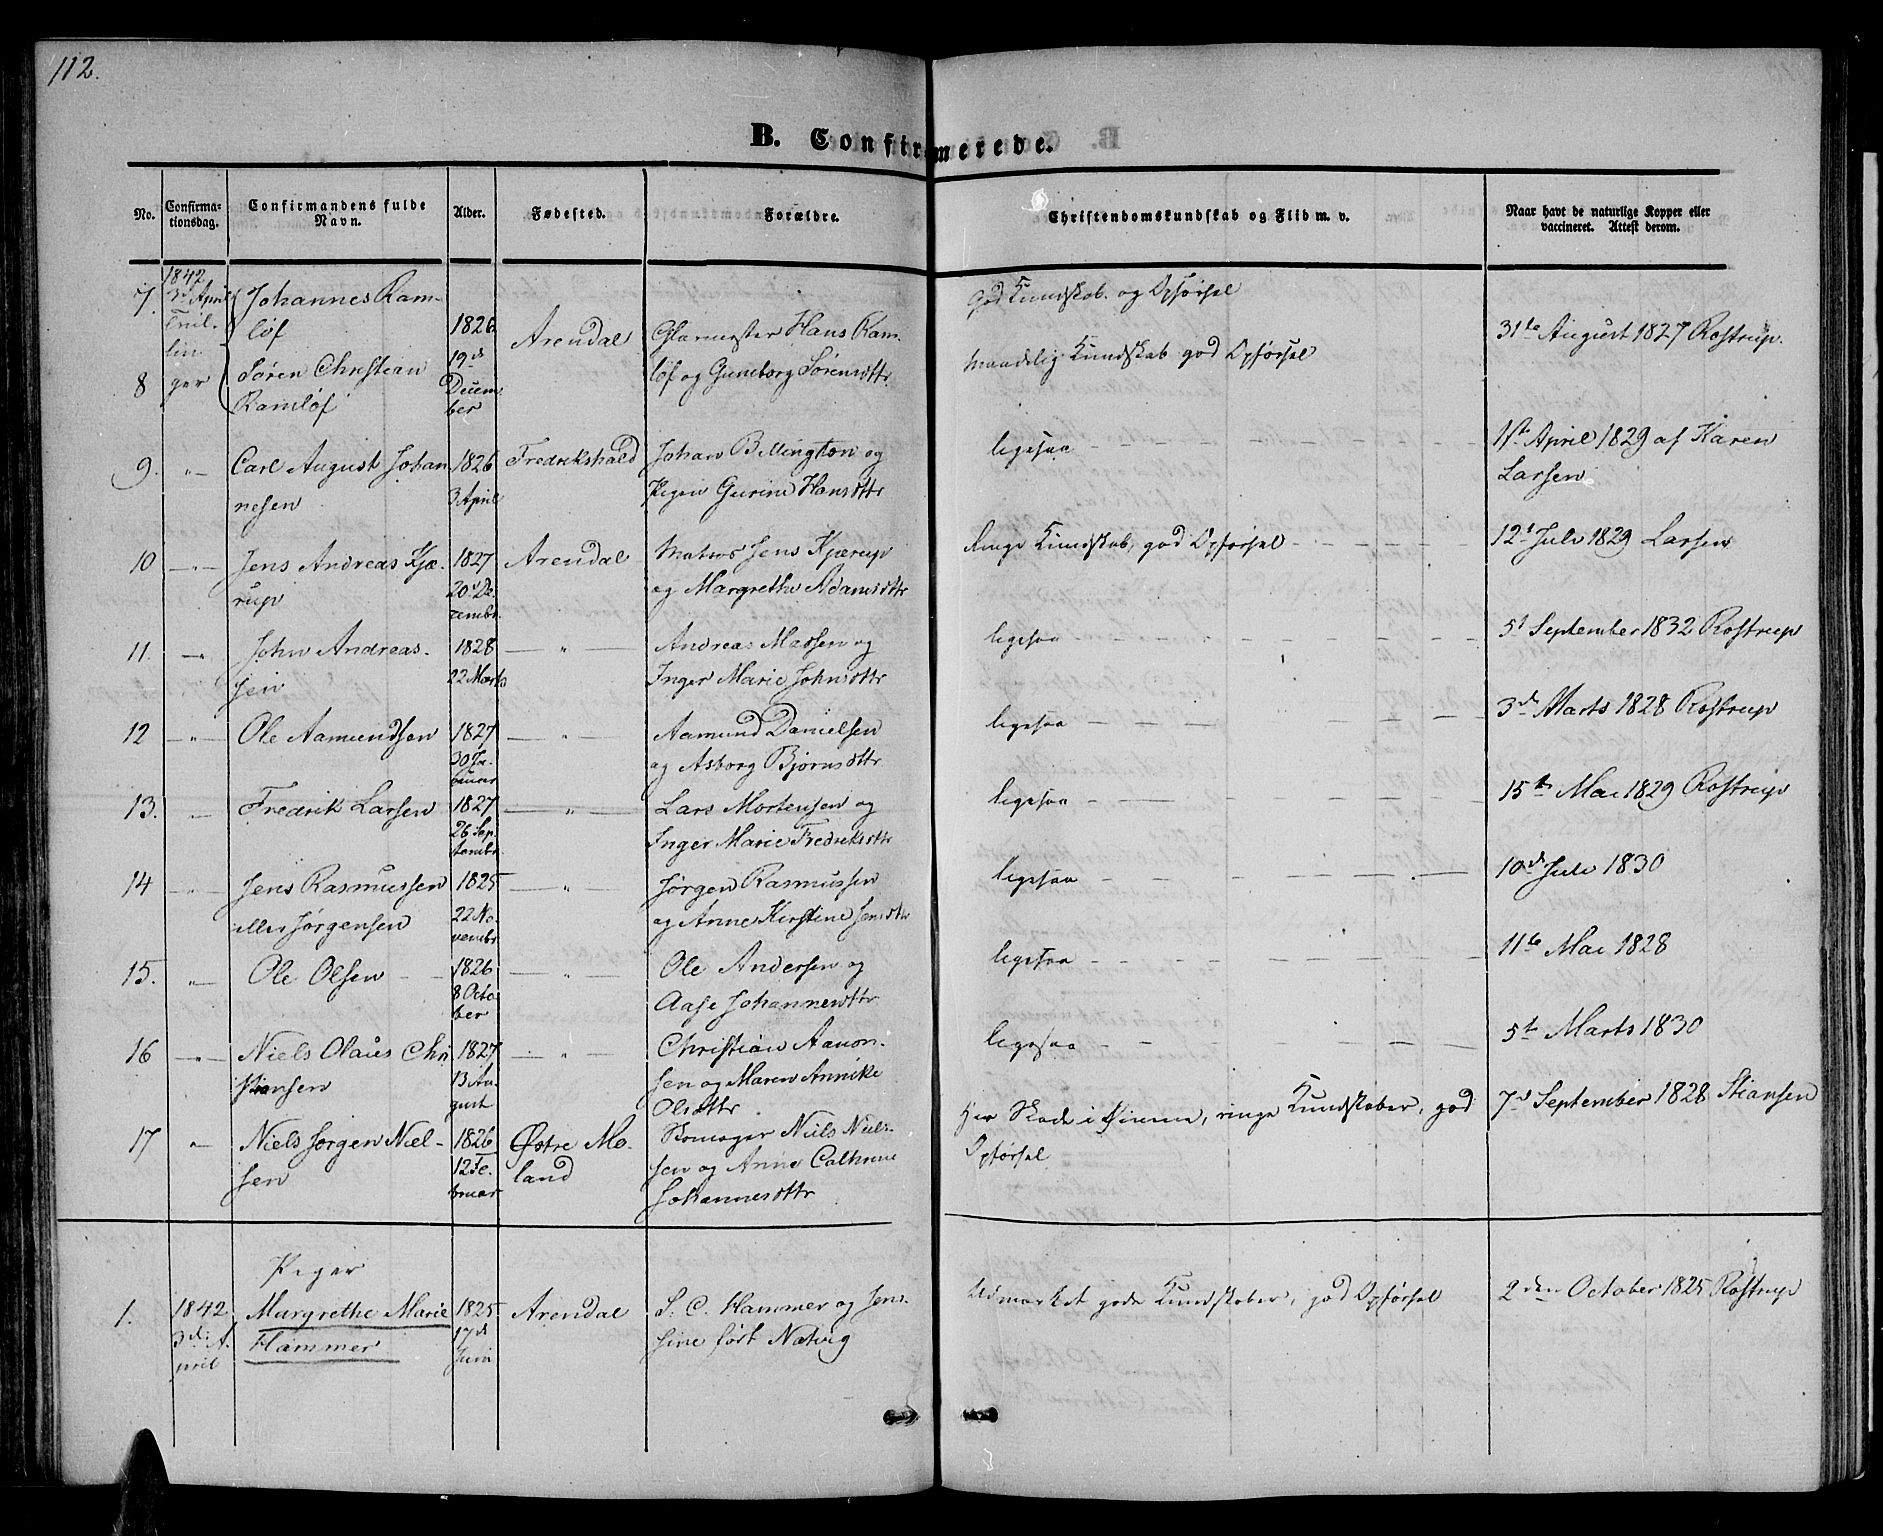 112.
B. Confirmerede.
No.
Confirma-
tionsdag.
Confirmandens fulde
Navn.
Alder.
Fødested.
Forældre.
Christendomskundskab og Flid m. v.
Naar havt de naturlige Kopper eller
vaccineret. Attest derom.
1842
3d April
Tvil-
lin
ger
7. Johannes Ram-
løf
8 Søren Christian
Ramløf
1826
19d
Decem-
ber
Arendal
Glarmester Hans Ram-
løf og Guneborg Sørensdttr.
God Kundskab og Opførsel
maadelig Kundskab god Opførsel
31te August 1827 Rostrup.
9. -"- Carl August Johan
nesen
1826
3 April
Fredrikshald
Johan Billington og
Pigen Gurine Hansdttr
ligesaa
1ste April 1829 af Karen
Larsen
10 -"- Jens Andreas Kjæ-
rup
1827
20d De-
cembr.
Arendal
Matros Jens Kjærup
og Margrethe Adamsdttr
Ringe Kundskab, god Opførsel
12t Juli 1829 Larsen
11. -"- John Andreas-
sen
1828
22 Marts
-"-
Andreas Madsen og
Inger Marie Johnsdttr
ligesaa
5t September 1832 Rostrup
12 -"- Ole Aamundsen
1827
30 Ja-
nuar
-"-
Aamund Danielsen
og Asborg Bjørnsdttr
ligesaa
3de Marts 1828 Rostrup
13. -"- Fredrik Larsen
1827
26 Sep-
tembr.
-"-
Lars Mortensen og
Inger Marie Fredriksdttr
ligesaa
15te Mai 1829 Rostrup
14 -"- Jens Rasmussen
eller Jørgensen
1825
22 No-
vembr.
-"-
Jørgen Rasmussen
og Anne Kirstine Jensdttr
ligesaa
10de Juli 1830
15. -"- Ole Olsen
1826
8 Octo-
ber
-"-
Ole Andersen og
Aase Johannesdttr
ligesaa
11te Mai 1828
16 -"- Niels Olaus Chri
stiansen
1827
13 Au-
gust
-"-
Christian Aanon-
sen og Maren Annike
Olsdttr.
ligesaa
5te Marts 1830
17 -"- Niels Jørgen Niel-
sen
1826
12 Fe-
bruar
Østre Mo-
land
Skomager Niels Niels-
sen og Anne Cathrine
Johannesdttr
Skade i, ringe Kundskaber, god
Opførsel
7d September 1828 Stiansen
Piger
1. 1842
3d: A-
pril
Margrethe Marie
Hammer
1825
17d
Juni
Arendal
S. C. Hammer og Jen-
sine født Natvig
Udmærket gode Kundskaber, god Opførsel
2den October 1825 Rostrup